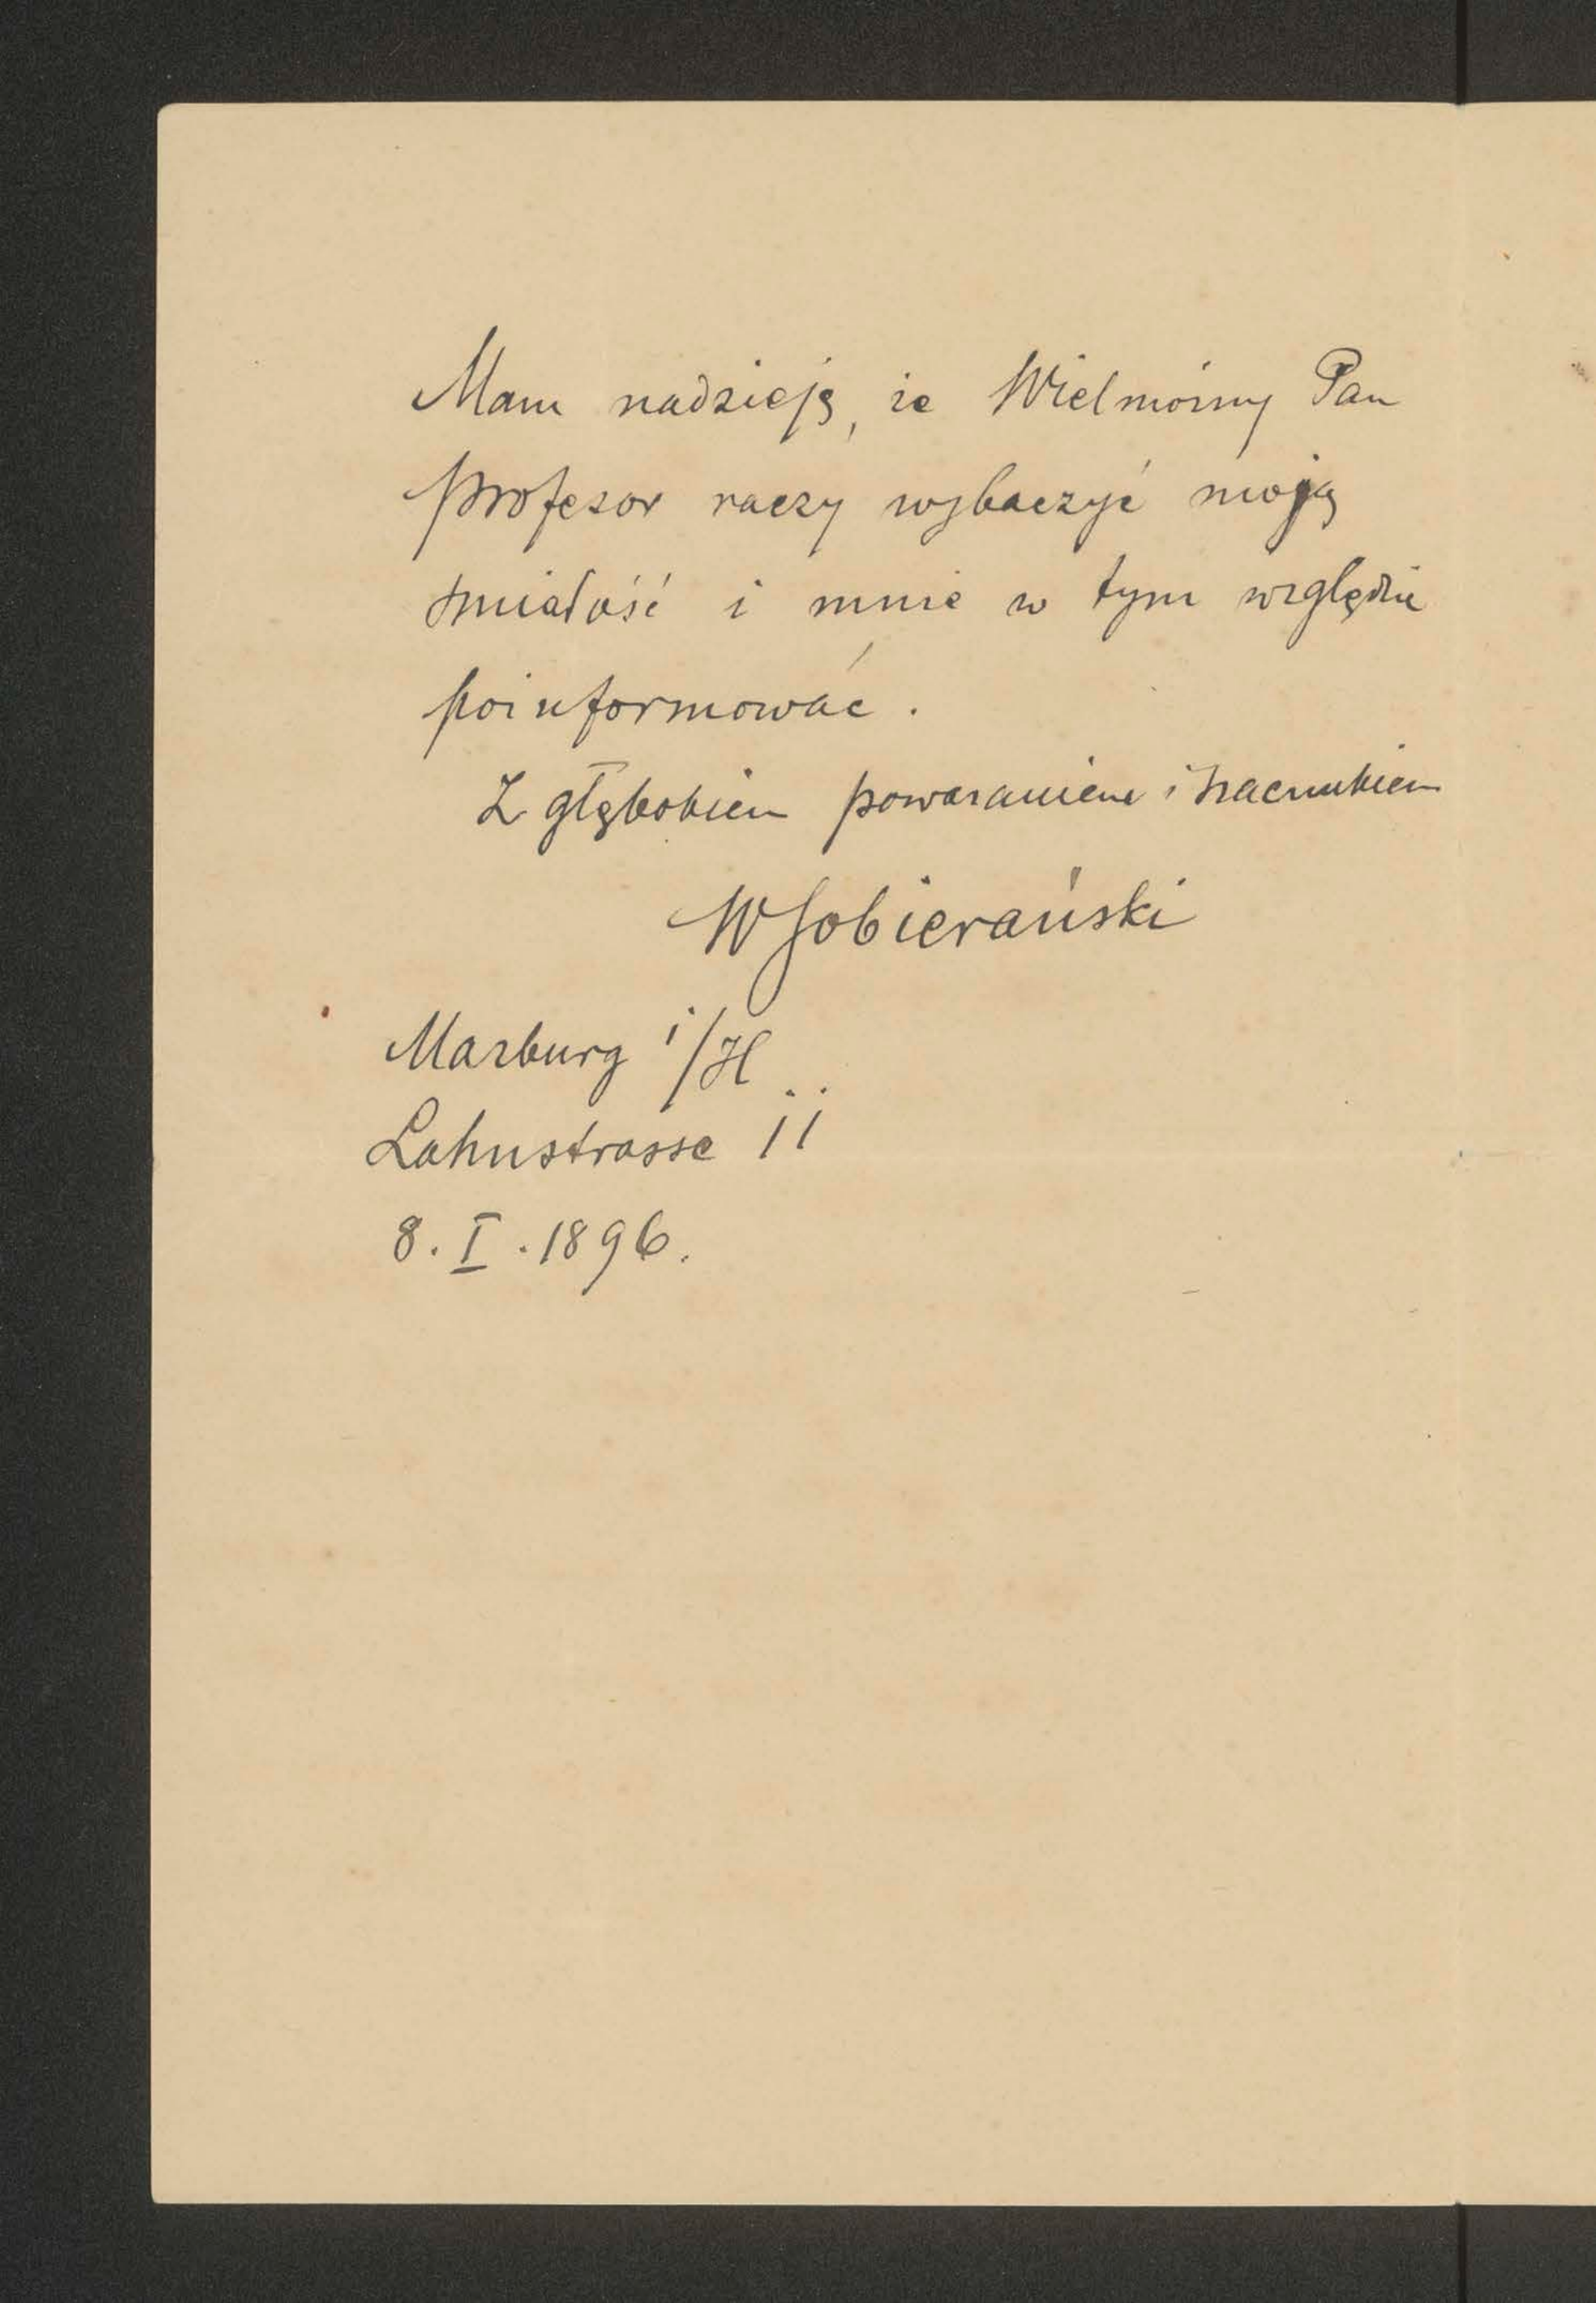 Mam nadzieję, że Wielmożny Pan
Profesor raczy wybaczyć moją
śmiałość i mnie w tym względzie
poinformować.
Z głębokiem poważaniem i szacunkiem
WSobierański
Marburg i/H
Lahnstrasse 11
8. I. 1896.